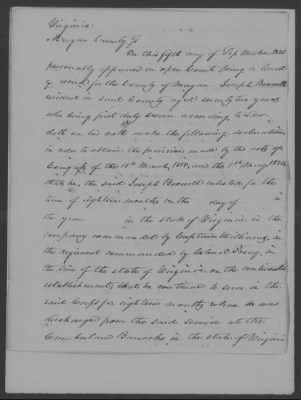 Virginia
Morgan County
On this fifth day of September 1820
personally appeared in open Court being a Court
of record for the County of Morgan Joseph
resident in said County aged seventy two years
who being first duly sworn according to Law
doth on his oath make the following declaration
in order to obtain the provision made by the acts of
Congress of the 18th March 1818, and the 1st May 1820
that he, the said Joseph enlisted for the
term of eighteen months on the day of in
the year in the state of Virginia in the
company commanded by Captain in
the regiment commanded by Colonel Posey, in
the line of the state of Virginia on the continental
establishment, that he continued to serve in the
said Corps for eighteen months when he was
discharged from the said service at the
Cumberland Barracks in the state of Virginia